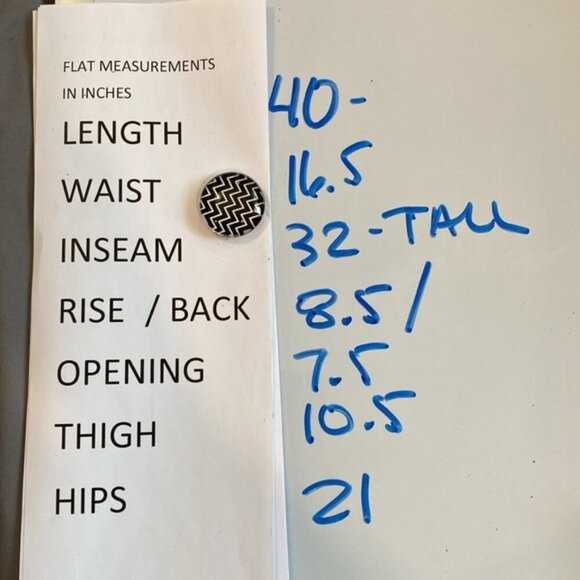 FLAT MEASUREMENTS
IN INCHES
LENGTH 40-
WAIST 16.5
INSEAM 32-TALL
RISE / BACK 8.5/
OPENING 7.5
THIGH 10.5
HIPS 21